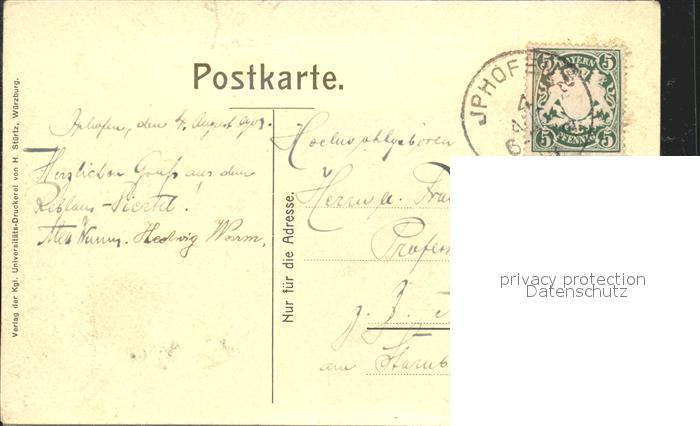 Postkarte.
Iphofen, den 4. August 1903.
Herzlichen Gruß aus dem
Reblaus-Viertel!
Hedwig Worm.
Hochwohlgeboren
Herrn
Profess
z. Z.
am Starnb
Nur für die Adresse.
Verlag der Kgl. Universitäts-Druckerei von H. Stürtz, Würzburg.
JPHOF
4
5 BAYERN 5
5 PFENNIG 5
privacy protection
Datenschutz